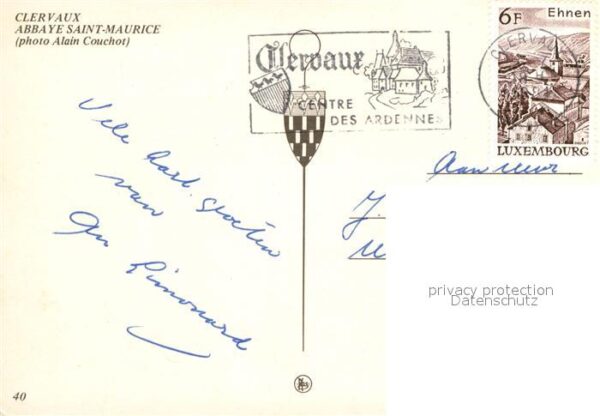 CLERVAUX
ABBAYE SAINT-MAURICE
(photo Alain Couchot)
Clervaux
CENTRE
DES ARDENNES
6F Ehnen
CLERVAUX
LUXEMBOURG
Vele hart. groeten
van
An
Aan
J.
privacy protection
Datenschutz
40